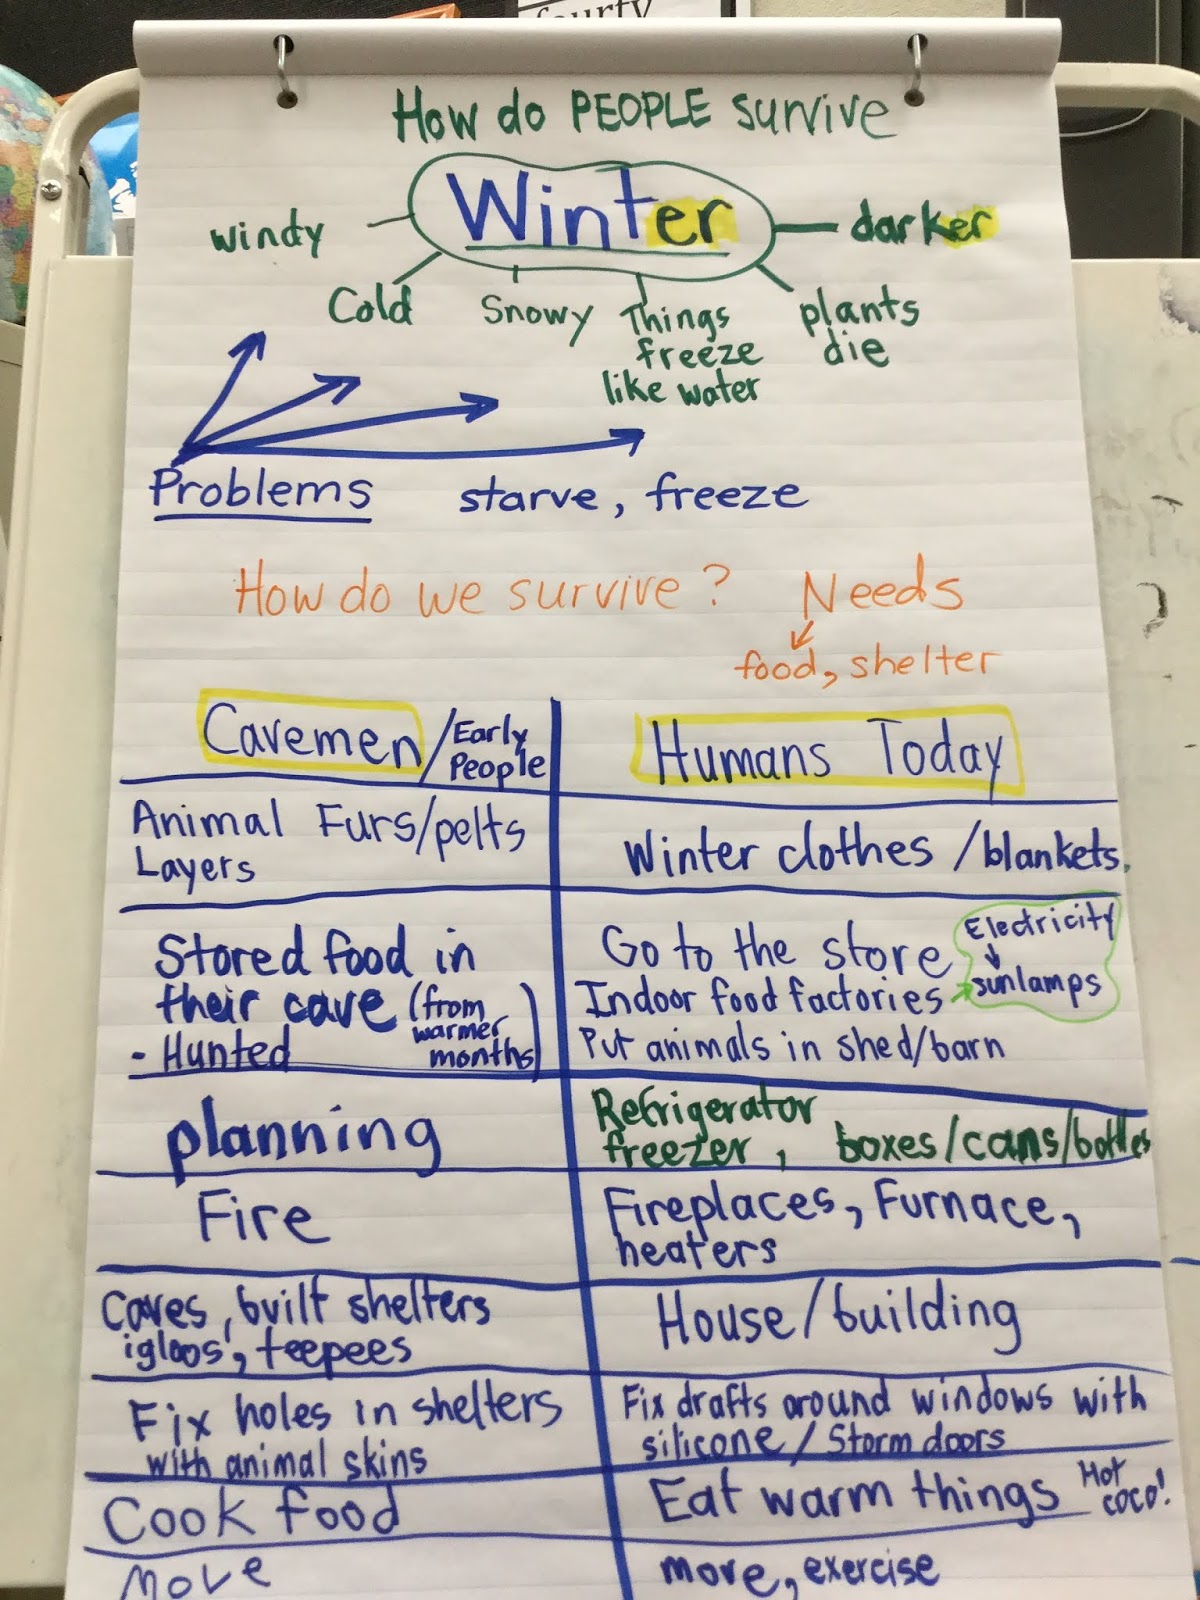 fourty
How do PEOPLE survive
Winter
windy
darker
Cold
Snowy
Things
freeze
like water
plants
die
Problems starve, freeze
How do we survive? Needs
food, shelter
Cavemen/Early
People
Humans Today
Animal Furs/pelts
Layers
Winter clothes/blankets.
Stored food in
their cave (from
warmer
months)
- Hunted
Go to the store
Indoor food factories
Put animals in shed/barn
Electricity
sunlamps
planning
Refrigerator
freezer, boxes/cans/bottles
Fire
Fireplaces, Furnace,
heaters
Caves, built shelters
igloos, teepees
House/building
Fix holes in shelters
with animal skins
Fix drafts around windows with
silicone/Storm doors
Cook food
Eat warm things
Hot
coco!
Move
move, exercise